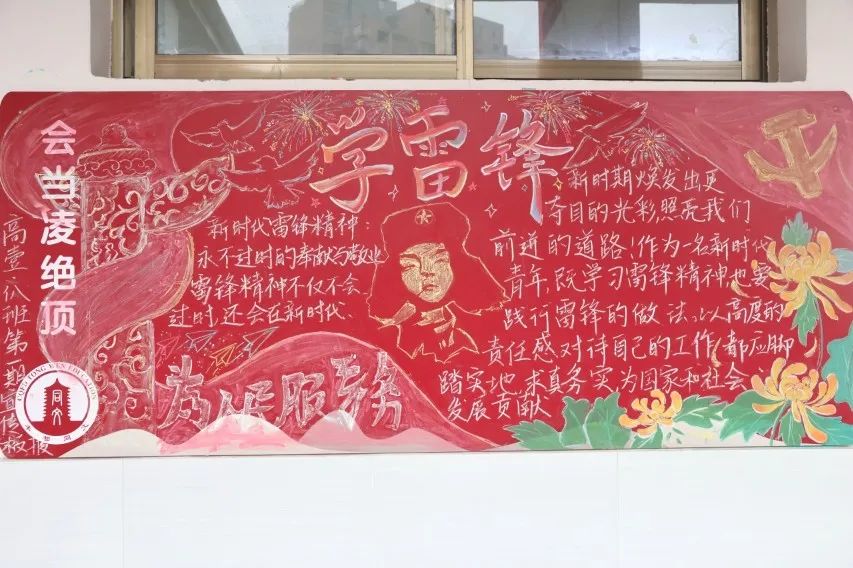 会当凌绝顶
高壹八班第一期宣传板报
学雷锋
新时代雷锋精神：
永不过时的奉献与敬业
雷锋精神不仅不会
过时，还会在新时代
新时期焕发出更
夺目的光彩，照亮我们
前进的道路，作为一名新时代
青年，既学习雷锋精神，也要
践行雷锋的做法，以高度的
责任感对待自己的工作，都应脚
踏实地，求真务实，为国家和社会
发展贡献
为人民服务